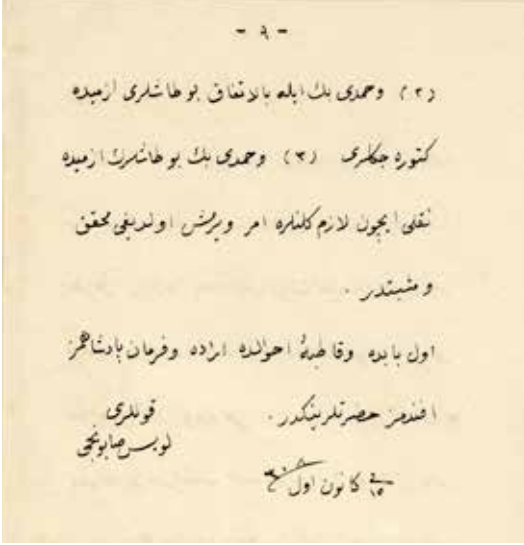 - ٩ -
(٢) وحمدى بك ايله بالاتفاق بو طاشلرى ازميده
كتوره جكلرى (٣) وحمدى بك بو طاشلرك ازميده
نقلى ايچون لازم كلنلره امر ويرمش اولديغى محقق
و مثبتدر .
اول بابده وقاطبهٔ احوالده اراده وفرمان پادشاهمز
افندمز حضرتلرينكدر .
قوللرى
لويس صابونجى
فى ١٥ كانون اول